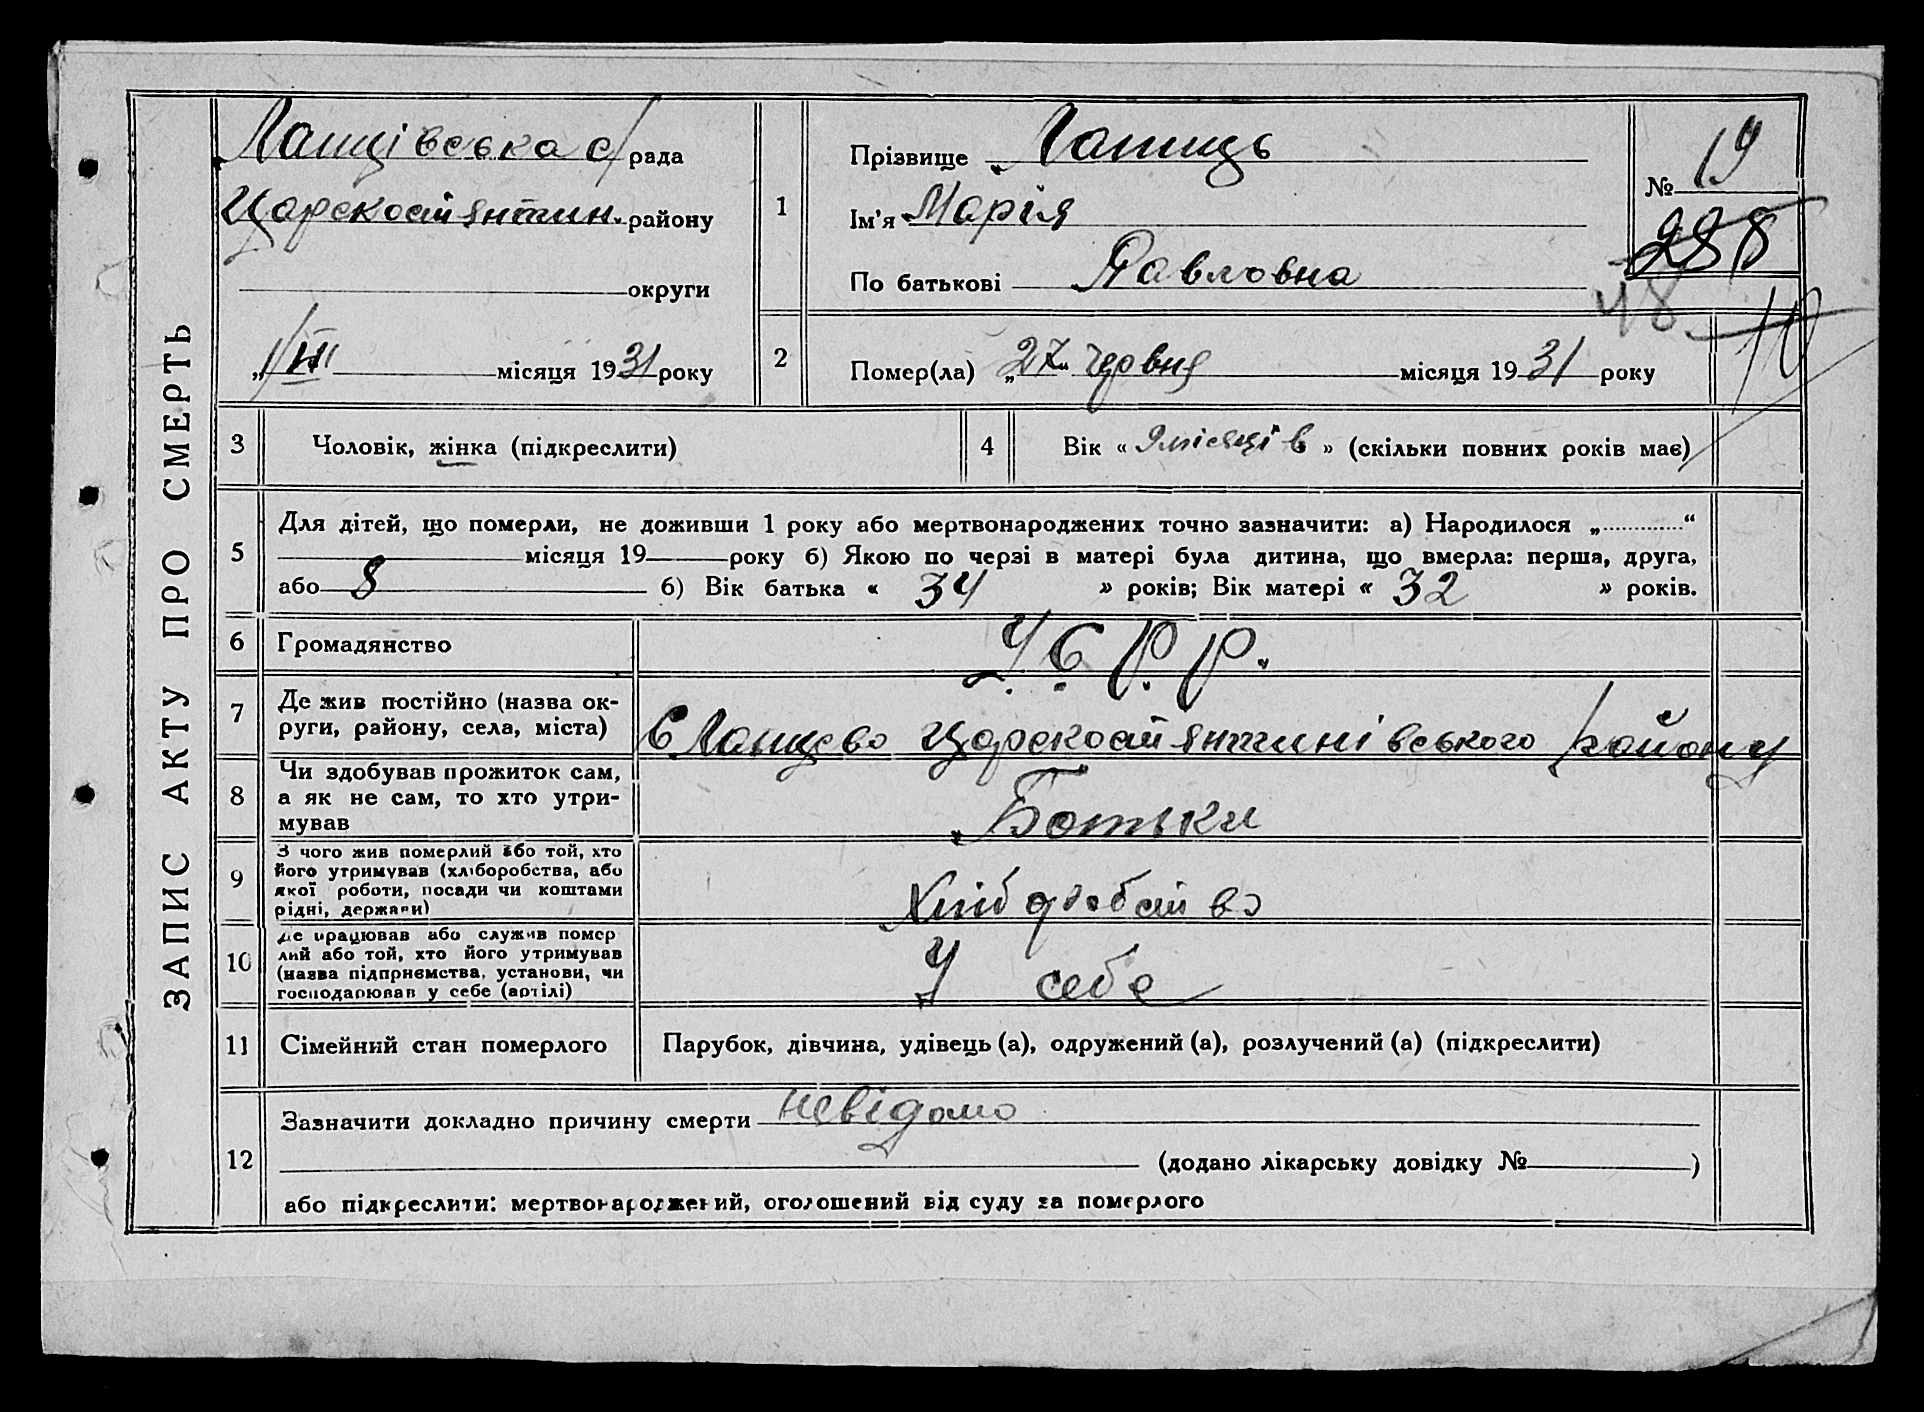 ЗАПИС АКТУ ПРО СМЕРТЬ
Лащівська с/рада
Царскостянтин. району
округи
місяця 1931 року
1
Прізвище
Ім'я Марія
По батькові Павловна
№ 19
288
48
10
2
Помер(ла) „27“ червня місяця 1931 року
3
Чоловік, жінка (підкреслити)
4
Вік « 9 місяців » (скільки повних років має)
5
Для дітей, що померли, не доживши 1 року або мертвонароджених точно зазначити: а) Народилося „............“
місяця 19 року б) Якою по черзі в матері була дитина, що вмерла: перша, друга,
або 8 б) Вік батька « 34 » років; Вік матері « 32 » років.
6
Громадянство
У.С.Р.Р.
7
Де жив постійно (назва ок-
руги, району, села, міста)
С Лащево Царскостянтинівського району
8
Чи здобував прожиток сам,
а як не сам, то хто утри-
мував
Батьки
9
З чого жив померлий або той, хто
його утримував (хліборобства, або
якої роботи, посади чи коштами
рідні, держави)
Хліборобство
10
Де працював або служив помер
лий або той, хто його утримував
(назва підприємства, установи, чи
господарював у себе (артілі)
У себе
11
Сімейний стан померлого
Парубок, дівчина, удівець (а), одружений (а), розлучений (а) (підкреслити)
12
Зазначити докладно причину смерти невідомо
(додано лікарську довідку № )
або підкреслити: мертвонароджений, оголошений від суду за померлого